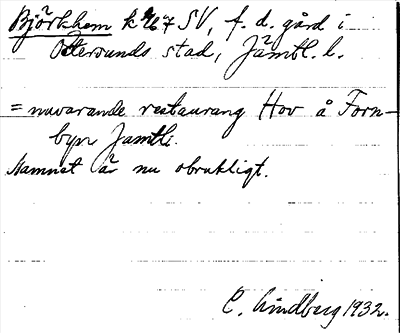 Björkhem k 467 SV, f. d. gård i
Östersunds stad, Jämtl. l.
= nuvarande restaurang Hov å Forn-
byn Jamtli.
Namnet är nu obrukligt.
C. Lindberg 1932.